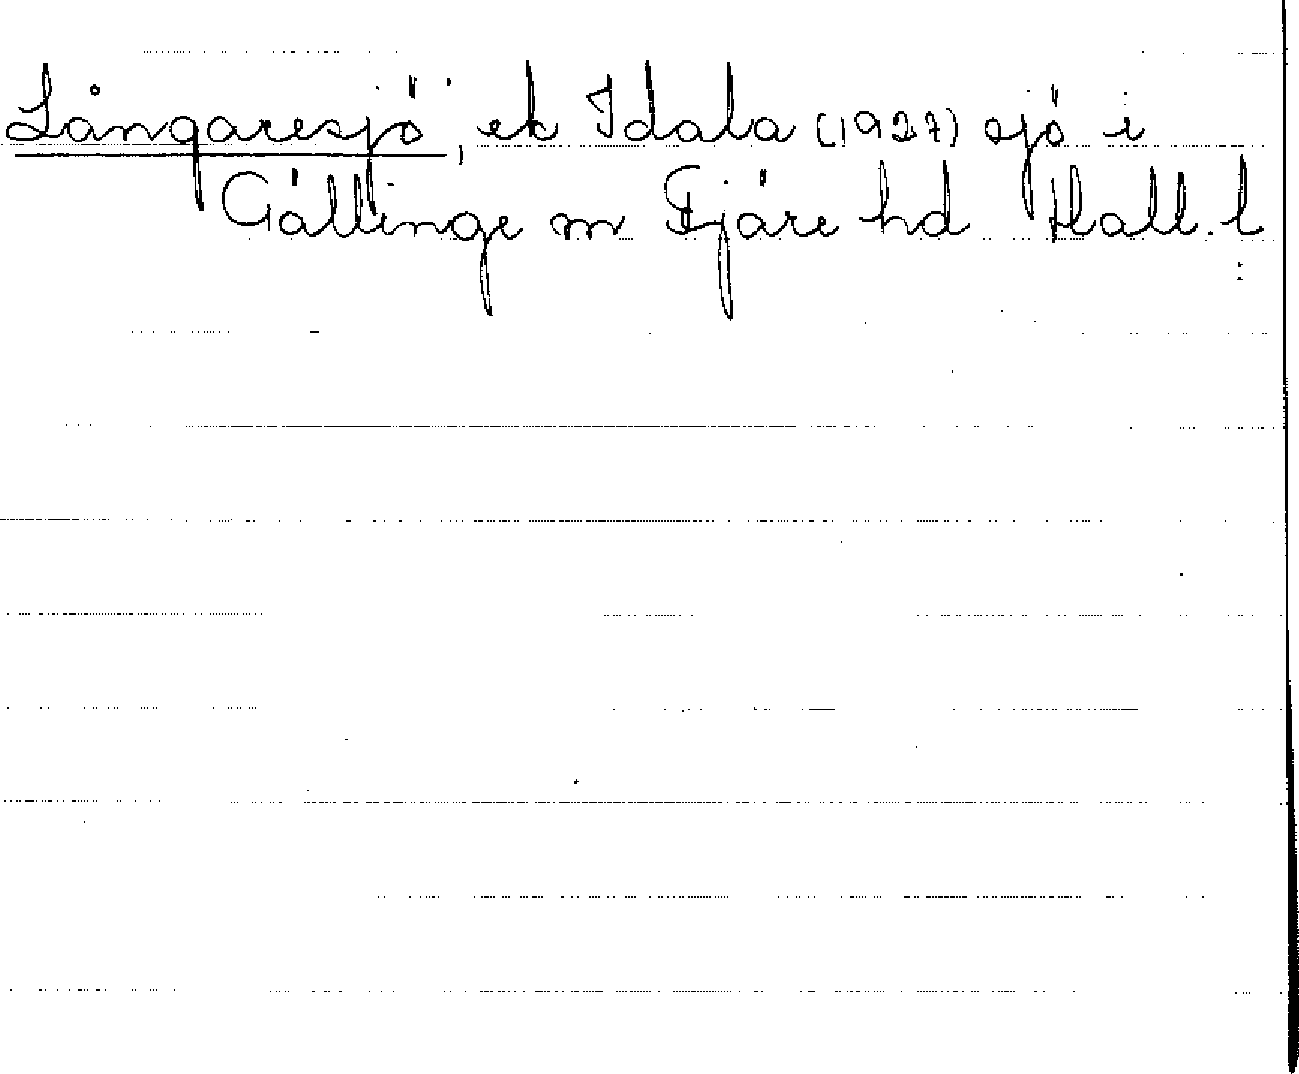 Långaresjö, ek Idala (1927) sjö i
Gällinge m Fjäre hd Hall. l